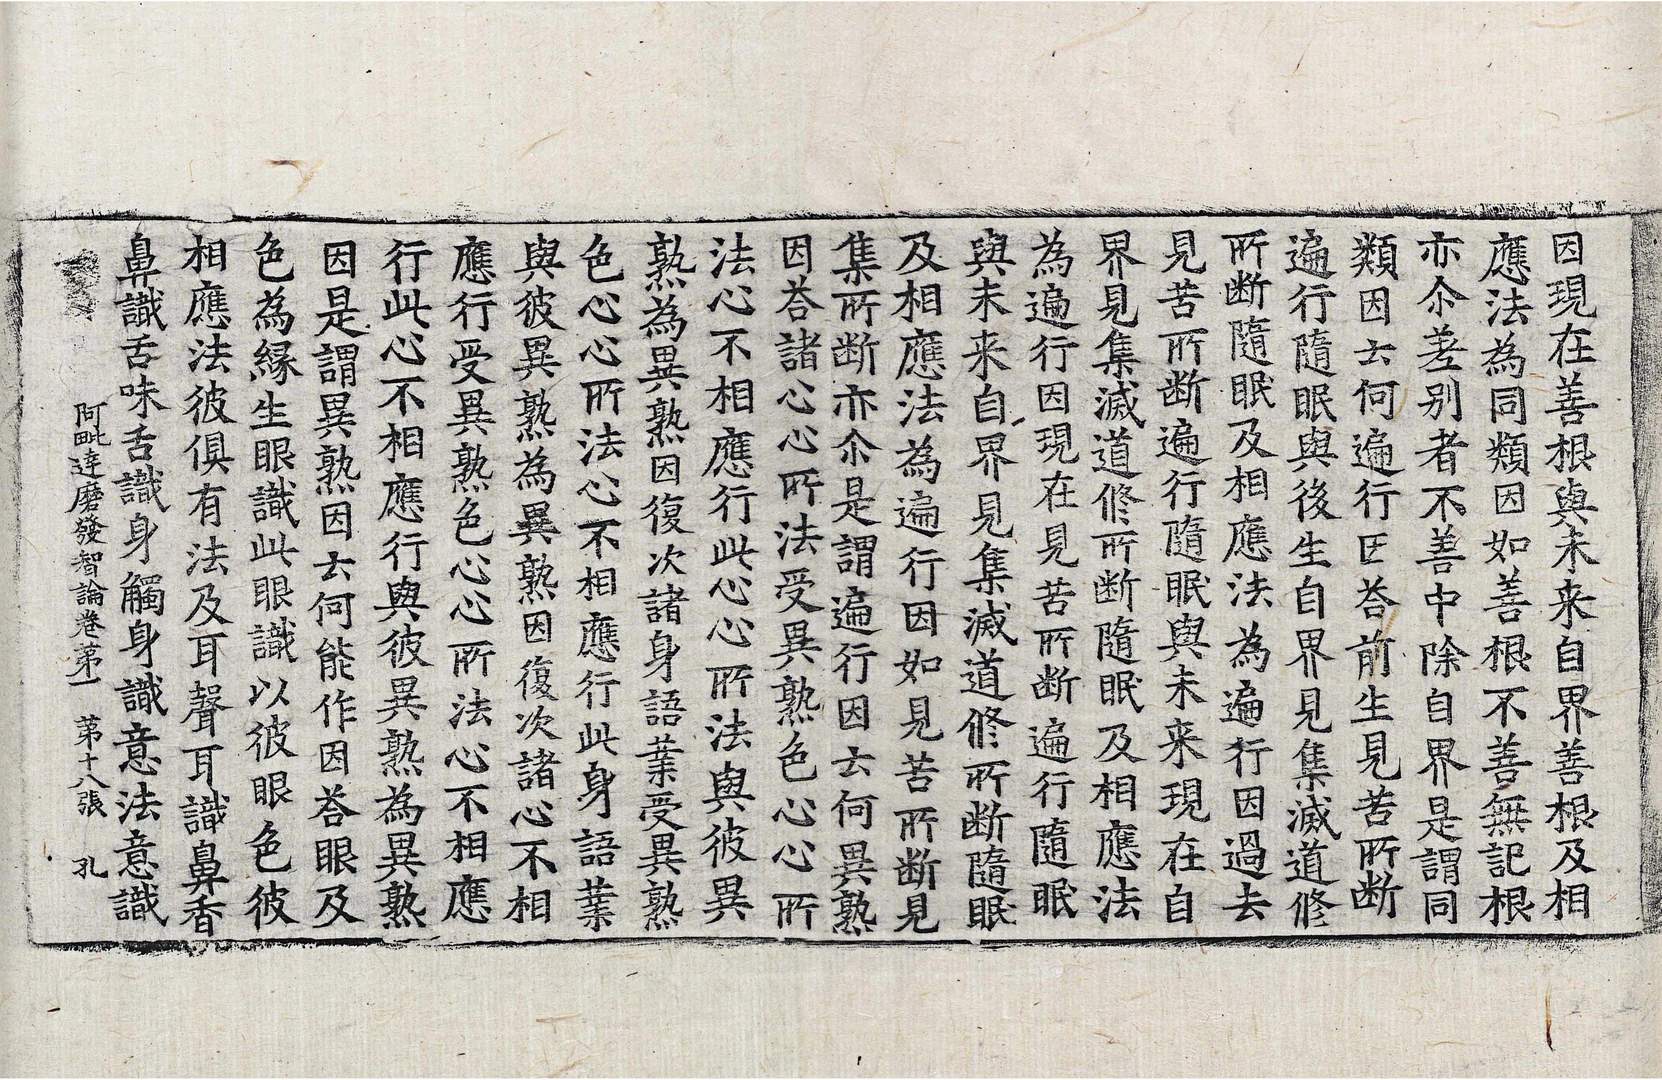 因現在善根與未来自界善根及相
應法為同類因如善根不善無記根
亦尒差别者不善中除自界是謂同
類因云何遍行因荅前生見苦所断
遍行隨眠與後生自界見集滅道修
所断隨眠及相應法為遍行因過去
見苦所断遍行隨眠與未来現在自
界見集滅道修所断隨眠及相應法
為遍行因現在見苦所断遍行隨眠
與未来自界見集滅道修所断隨眠
及相應法為遍行因如見苦所断見
集所断亦尒是謂遍行因云何異熟
因荅諸心心所法受異熟色心心所
法心不相應行此心心所法與彼異
熟為異熟因復次諸身語業受異熟
色心心所法心不相應行此身語業
與彼異熟為異熟因復次諸心不相
應行受異熟色心心所法心不相應
行此心不相應行與彼異熟為異熟
因是謂異熟因云何能作因荅眼及
色為縁生眼識此眼識以彼眼色彼
相應法彼俱有法及耳聲耳識鼻香
鼻識舌味舌識身觸身識意法意識
阿毗達磨發智論卷第一　第十八張　孔